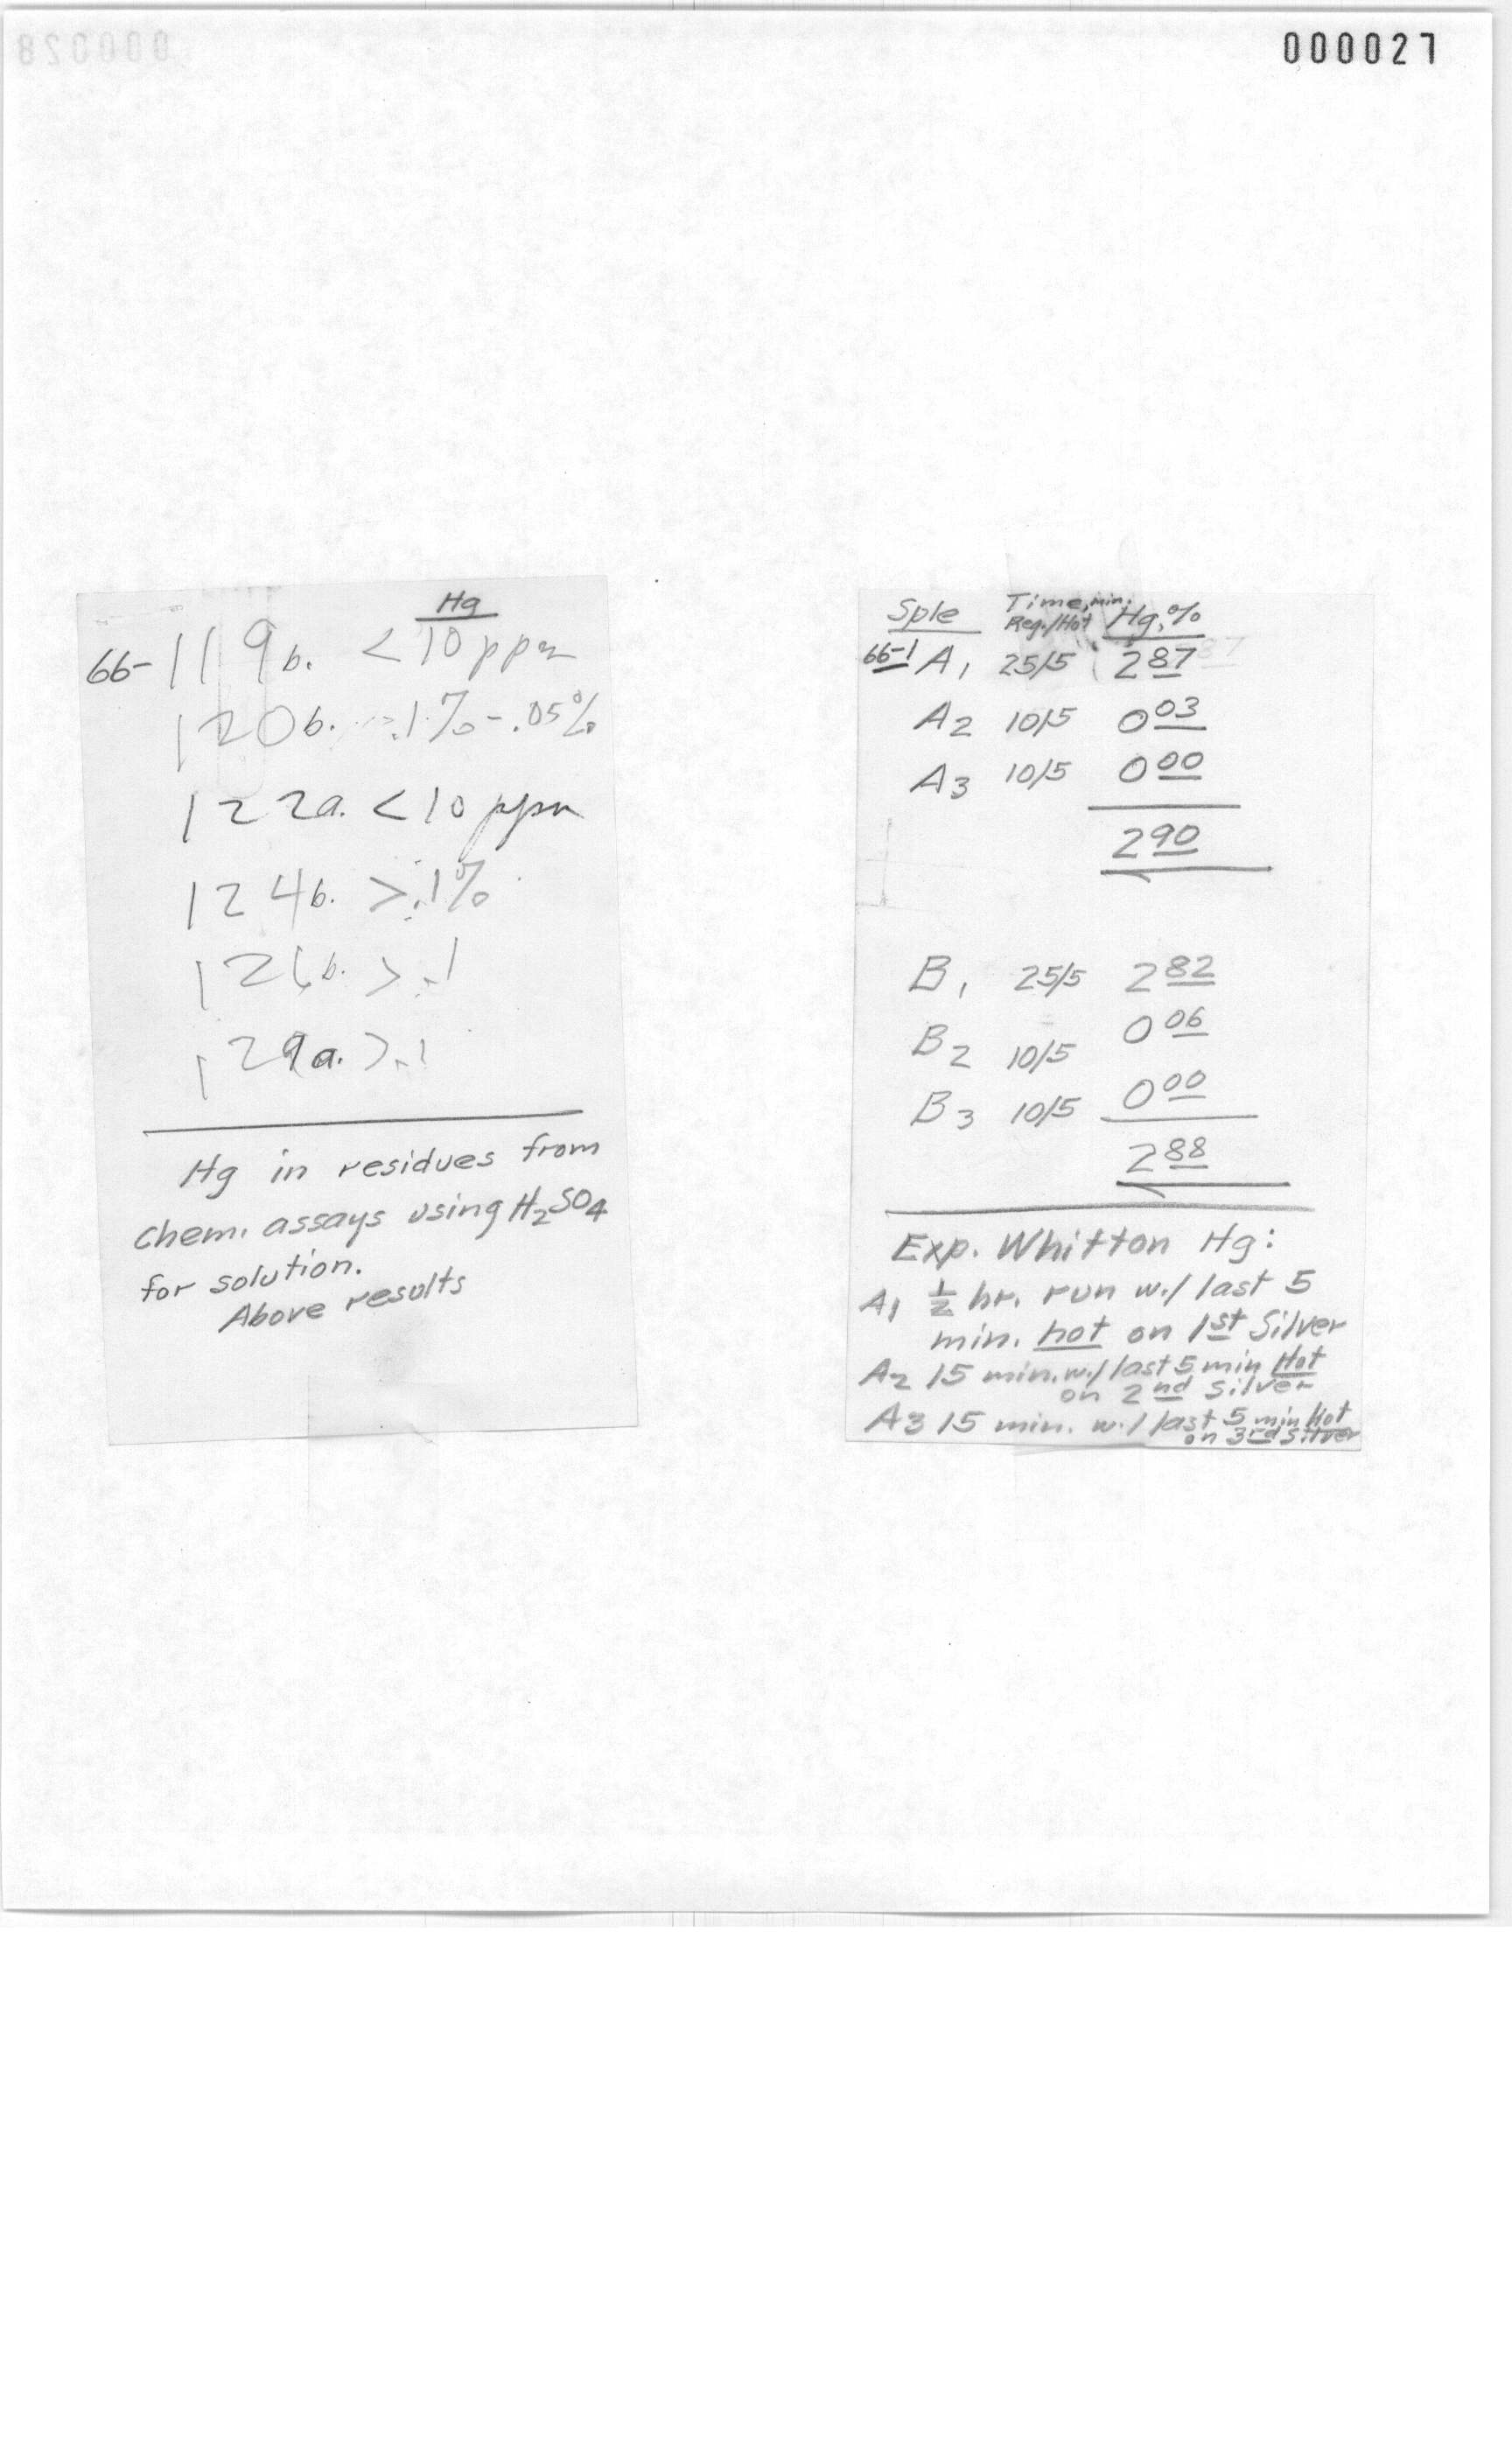 000027
Hg
66-119b. <10 ppm
120b. .1%-.05%
122a. <10 ppm
124b. >.1%
126b. >.1
129a. >.1
Hg in residues from
chem. assays using H2SO4
for solution.
Above results
Sple Time, min. Reg./Hot Hg,%
66-1 A1 25/5 2 87
A2 10/5 0 03
A3 10/5 0 00
2 90
B1 25/5 2 82
B2 10/5 0 06
B3 10/5 0 00
2 88
Exp. Whitton Hg:
A1 1/2 hr. run w./ last 5
min. hot on 1st Silver
A2 15 min. w./ last 5 min Hot
on 2nd silver
A3 15 min. w./ last 5 min Hot
on 3rd silver